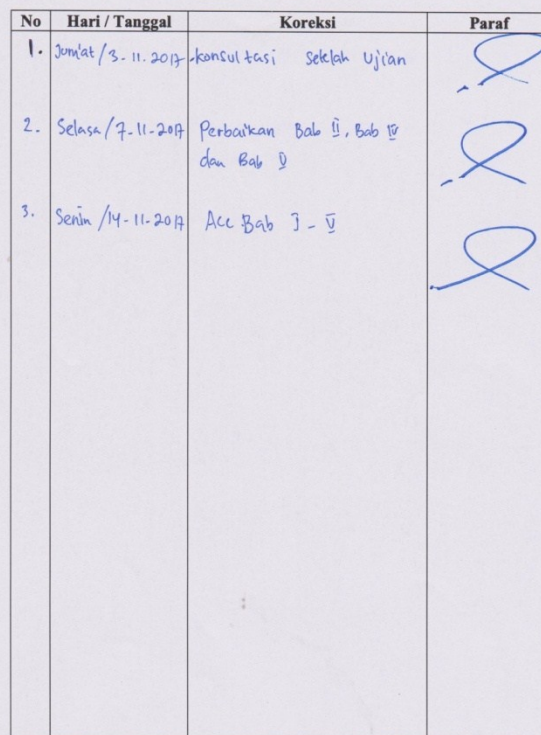 No Hari / Tanggal Koreksi Paraf
1. Jum'at / 3-11.2017 -konsultasi setelah Ujian
2. Selasa / 7-11-2017 Perbaikan Bab II, Bab IV
dan Bab V
3. Senin / 14-11-2017 Acc Bab I - V